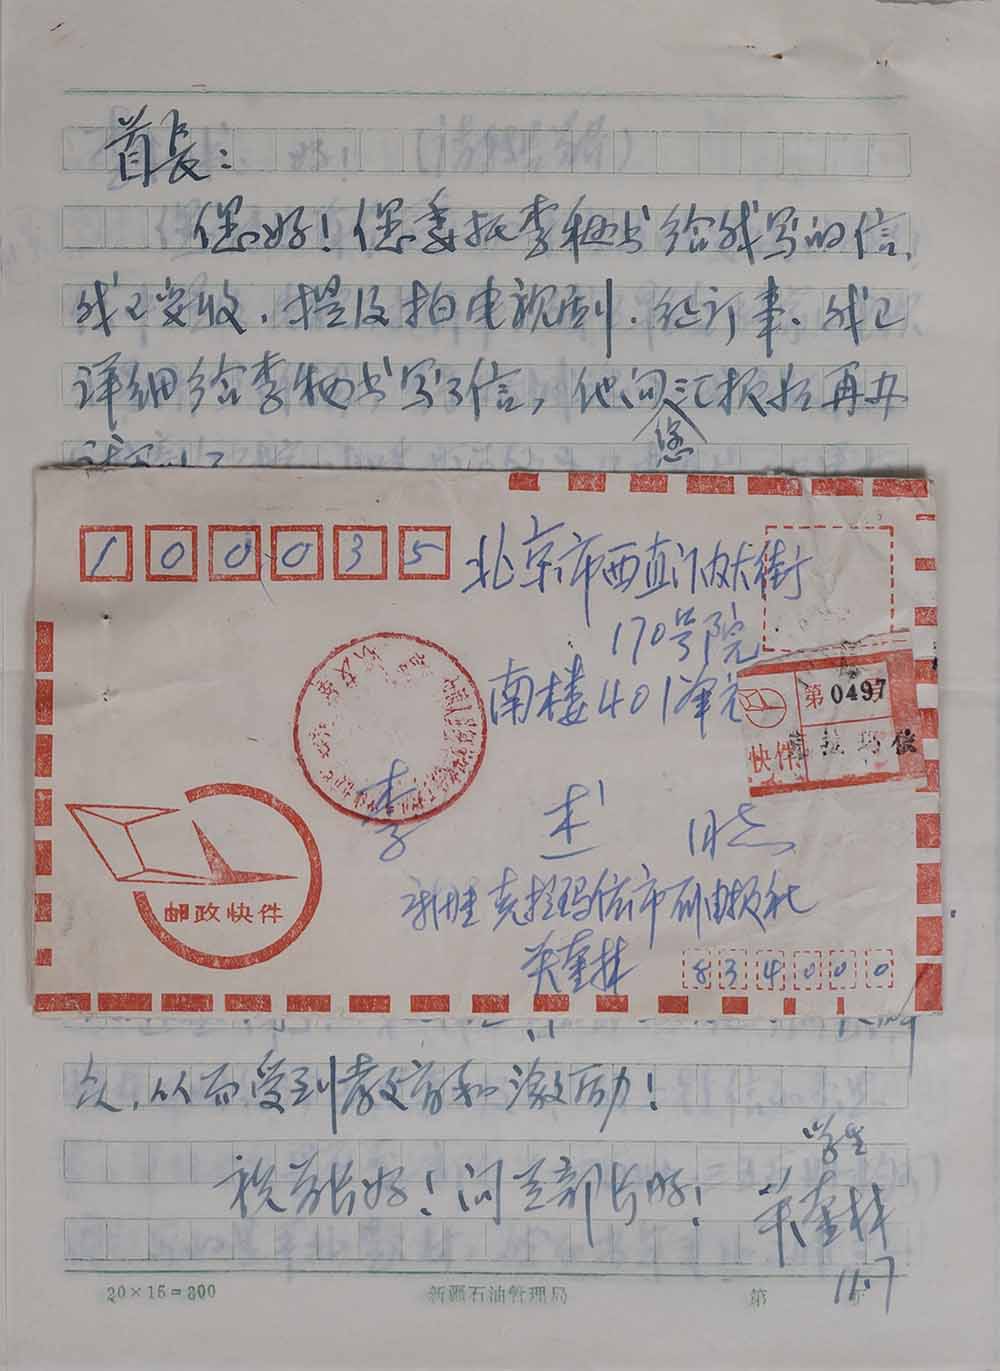 首长：
您好！您委托李秘书给我写的信，
我已安收，提及拍电视剧、征订事，我已
详细给李秘书写了信，他向您汇报后再办
100035
北京市西直门内大街
170号院
南楼401单元
第0497
快件 克拉玛依
李 杰
邮政快件
新疆克拉玛依市石油报社
奎林
834000
众，从而受到教育和激励！
祝首长好！问王部长好！
学生
奎林
11.7
20×15=300 新疆石油管理局 第 页